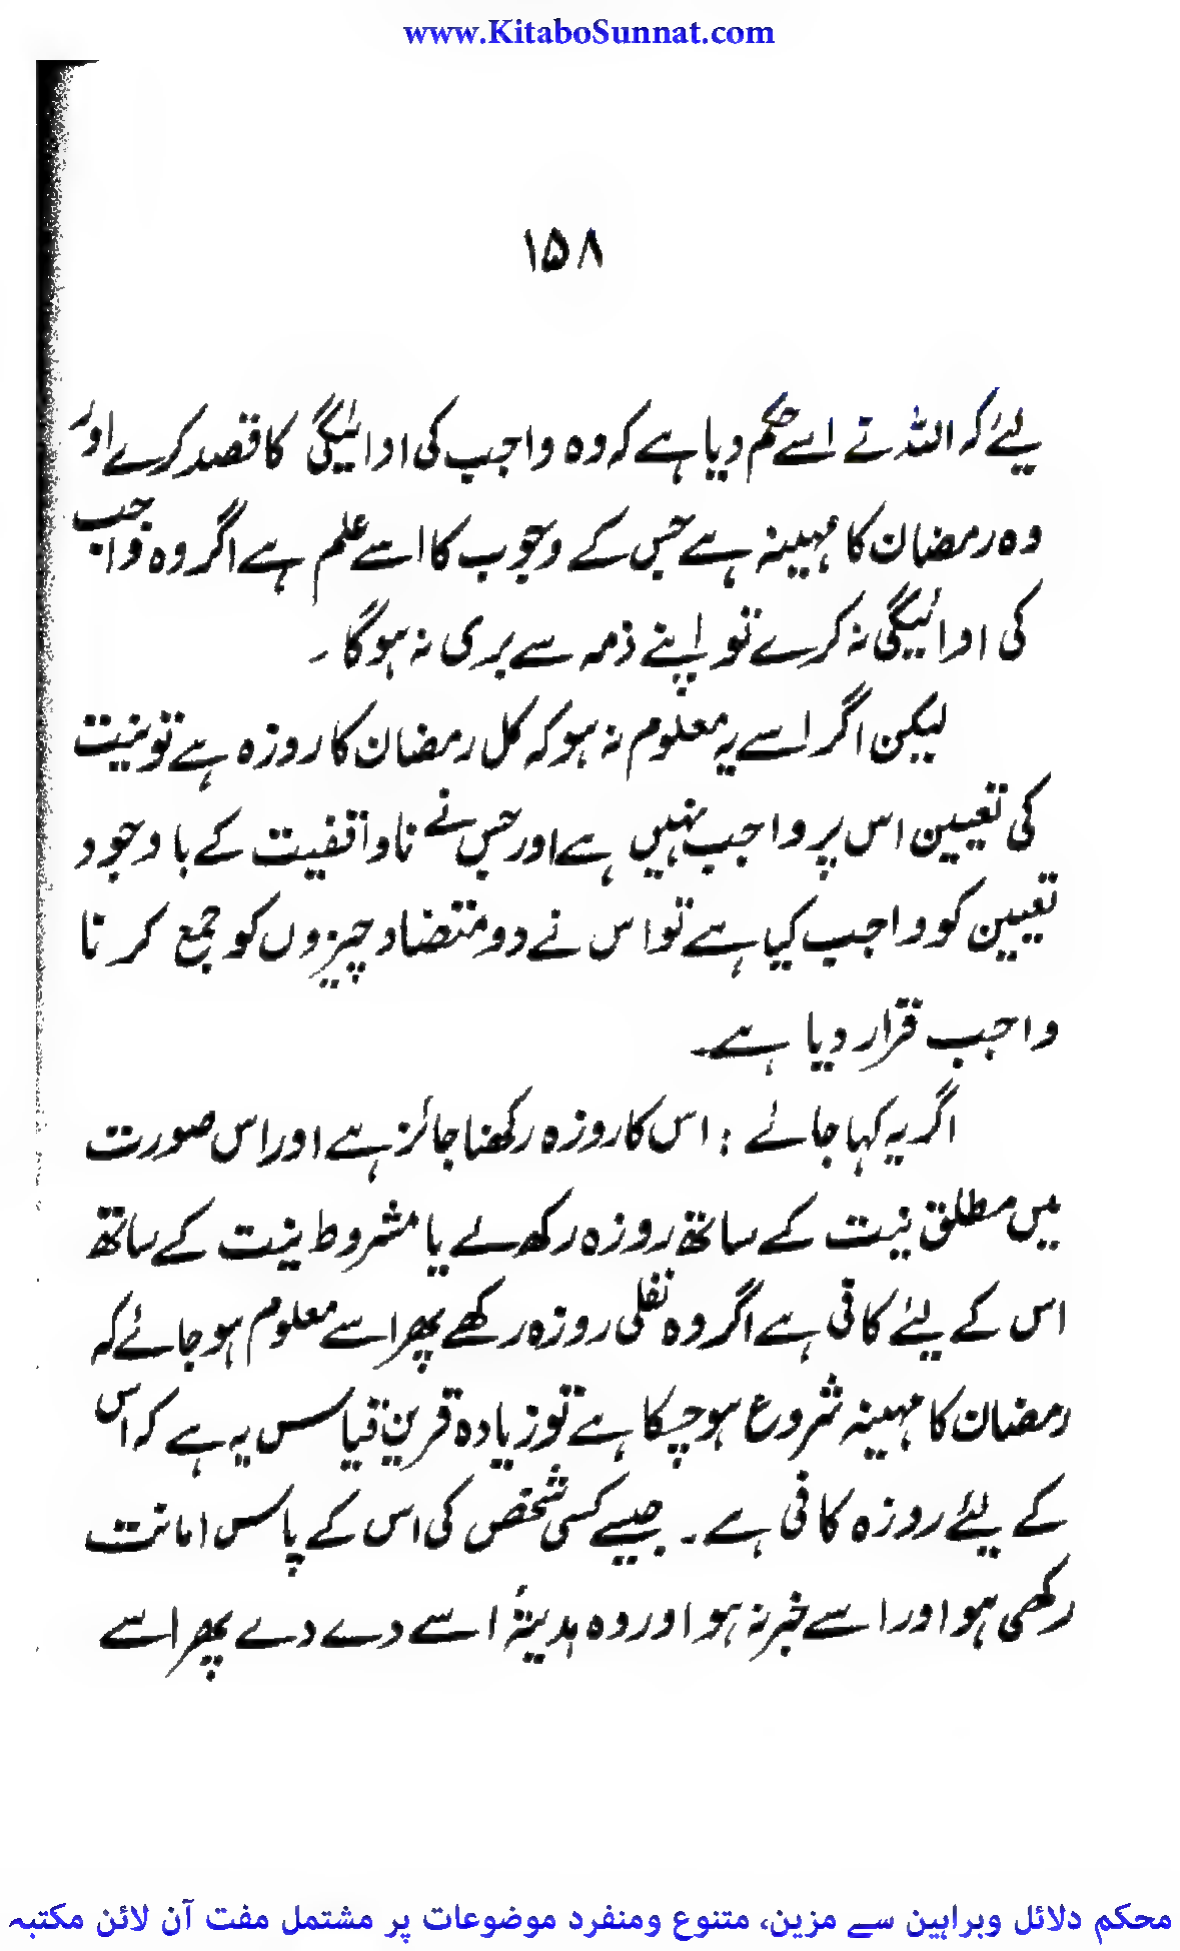 www.KitaboSunnat.com
۱۵۸
لیئے کہ اللہ نے اسے حکم دیا ہے کہ وہ واجب کی ادائیگی کا قصد کرے اور
وہ رمضان کا مہینہ ہے جس کے وجوب کا اسے علم ہے اگر وہ واجب
کی ادائیگی نہ کرے تو اپنے ذمہ سے بری نہ ہوگا ۔
لیکن اگر اسے یہ معلوم نہ ہو کہ کل رمضان کا روزہ ہے تو نیت
کی تعیین اس پر واجب نہیں ہے اور جس نے ناواقفیت کے باوجود
تعیین کو واجب کیا ہے تو اس نے دو متضاد چیزوں کو جمع کرنا
واجب قرار دیا ہے۔
اگر یہ کہا جائے : اس کا روزہ رکھنا جائز ہے اور اس صورت
میں مطلق نیت کے ساتھ روزہ رکھ لے یا مشروط نیت کے ساتھ
اس کے لیئے کافی ہے اگر وہ نفلی روزہ رکھے پھر اسے معلوم ہو جائے کہ
رمضان کا مہینہ شروع ہو چکا ہے تو زیادہ قرین قیاس یہ ہے کہ اس
کے لیئے روزہ کافی ہے ۔ جیسے کسی شخص کی اس کے پاس امانت
رکھی ہو اور اسے خبر نہ ہو اور وہ ہدیۃً اسے دے دے پھر اسے
محکم دلائل وبراہین سے مزین، متنوع ومنفرد موضوعات پر مشتمل مفت آن لائن مکتبہ